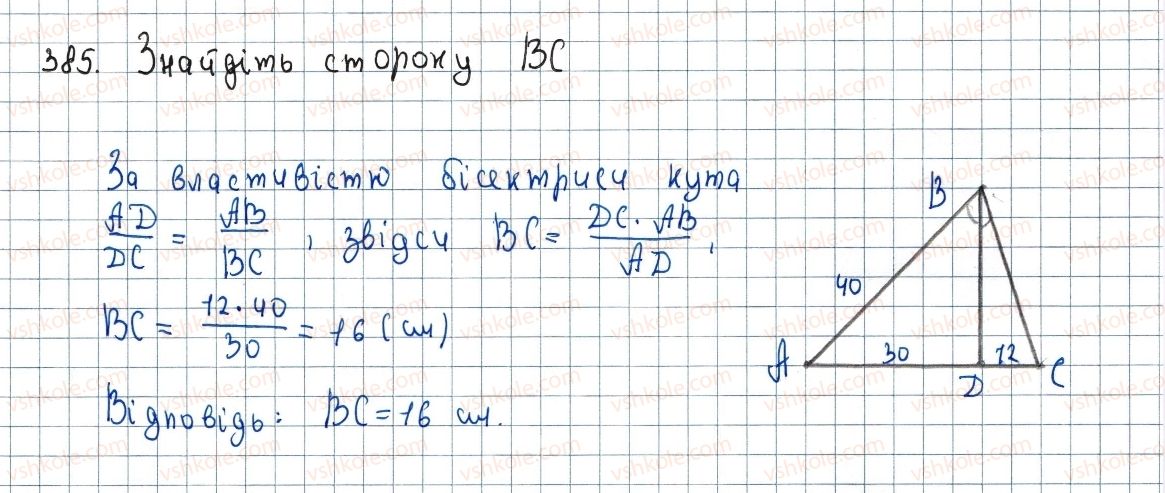 385. Знайдіть сторону BC
За властивістю бісектриси кута
AD/DC = AB/BC , звідси BC = DC · AB/AD ,
BC = 12 · 40/30 = 16 (см)
Відповідь: BC = 16 см.
B
40
A 30 D 12 C
vshkole.com